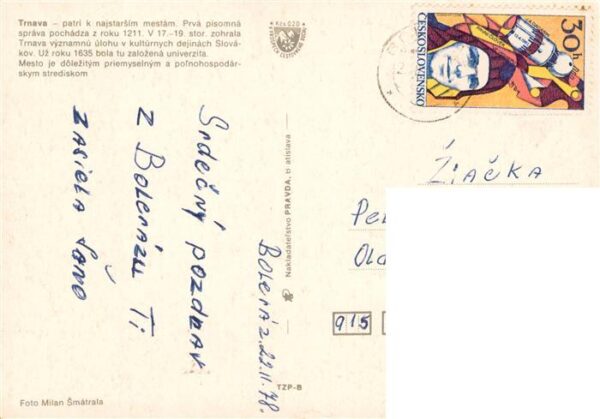 Trnava – patrí k najstarším mestám. Prvá písomná
správa pochádza z roku 1211. V 17.–19. stor. zohrala
Trnava významnú úlohu v kultúrnych dejinách Slová-
kov. Už roku 1635 bola tu založená univerzita.
Mesto je dôležitým priemyselným a poľnohospodár-
skym strediskom
Kčs 0.20
30h
ČESKOSLOVENSKO
Srdečný pozdrav
z Bolerázu Ti
zasiela
Boleráz 22.11.78.
Nakladateľstvo PRAVDA, Bratislava
Žiačka
915
TZP-B
Foto Milan Šmátrala